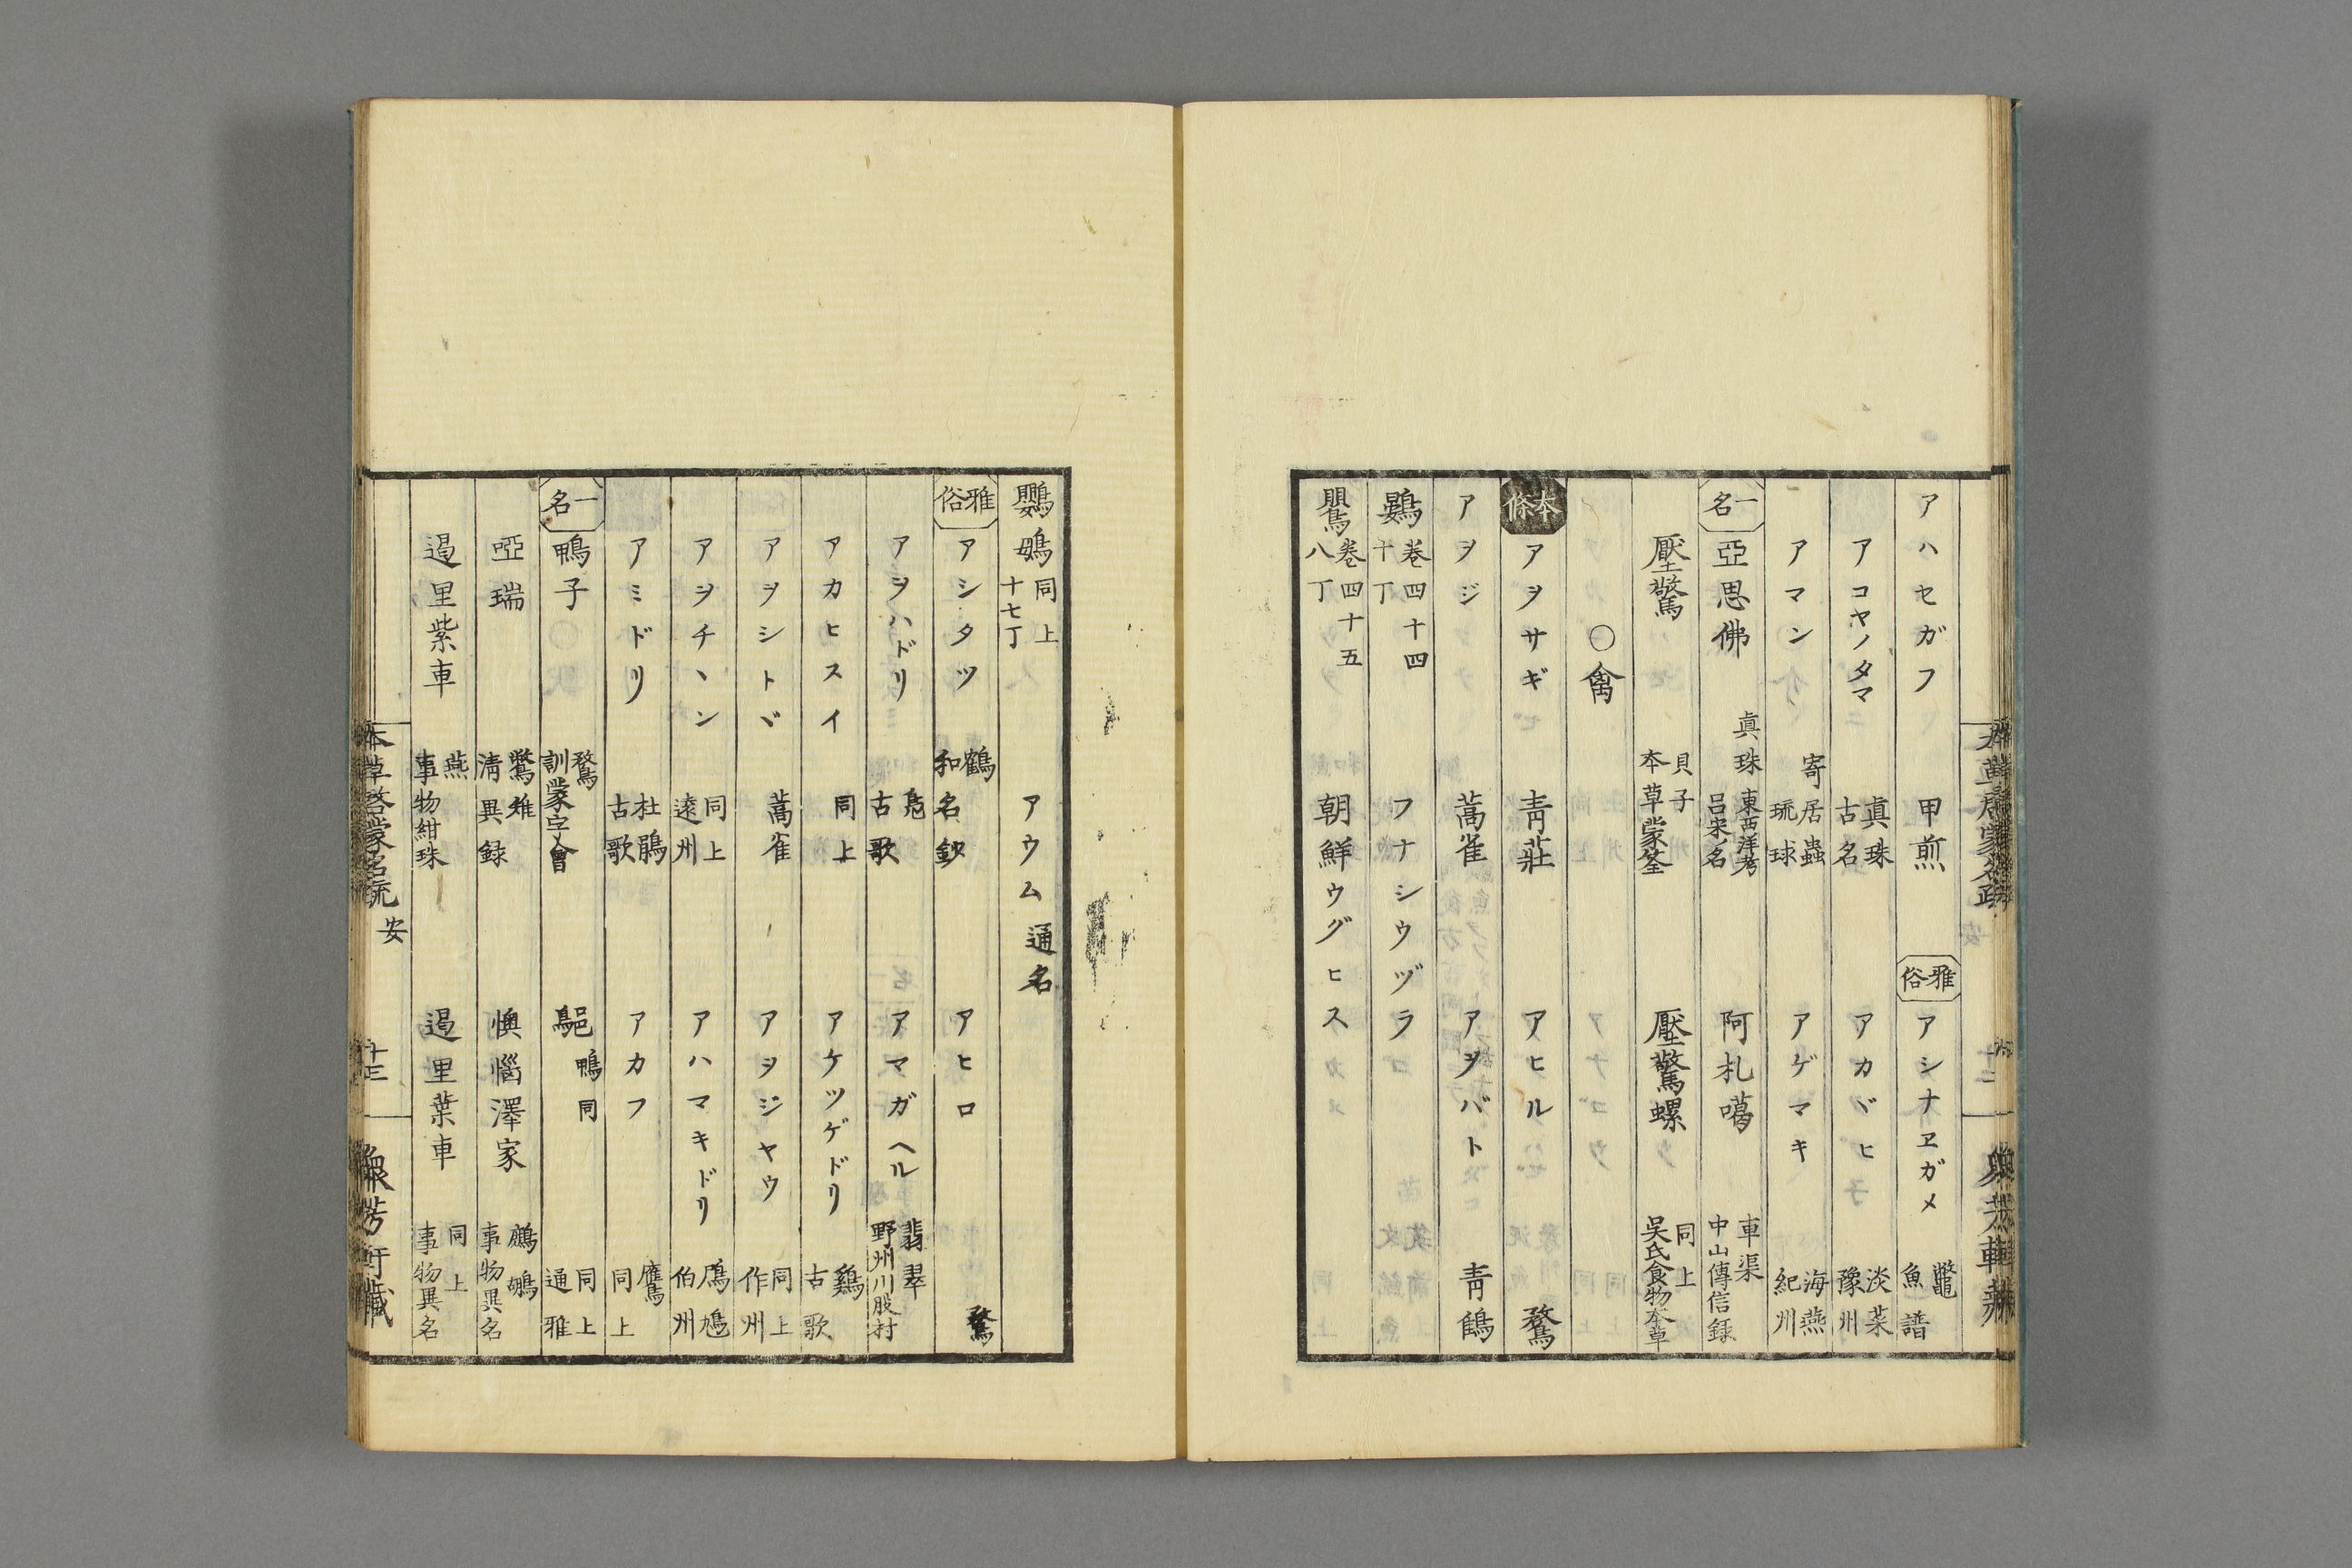 アハセガフ 甲煎 雅俗 アシナヱガメ 鼈 魚譜
アコヤノタマ 真珠 古名 アカヾヒ 淡菜 豫州
アマン 寄居蟲 琉球 アゲマキ 海燕 紀州
一名 亞思佛 真珠 東西洋考 呂宋ノ名 阿札噶 車渠 中山傳信録
壓驚 貝子 本草蒙筌 壓驚螺 同上 吳氏食物本草
〇禽
本條 アヲサギ 青莊 アヒル 鶩
アヲジ 蒿雀 アヲバト 青鶴
鷃 巻四十四 十丁 フナシウヅラ
鷪 巻四十五 八丁 朝鮮ウグヒス
鸚䳇 同上 十七丁 アウム 通名
雅俗 アシタヅ 鶴 和名鈔 アヒロ 鶩
アヲハドリ 鳧 古歌 アマガヘル 翡翠 野州川股村
アカヒスイ 同上 アケツゲドリ 鷄 古歌
アヲシトヾ 蒿雀 アヲジヤウ 同上 作州
アヲチヽン 同上 遠州 アハマキドリ 鳫鳩 伯州
アミドリ 杜鵑 古歌 アカフ 鷹 同上
一名 鴨子 鶩 訓蒙字會 鴨同 同上 通雅
啞瑞 鷩雉 清異録 懊惱澤家 鷓鴣 事物異名
遏里紫車 燕 事物紺珠 遏里葉車 同上 事物異名
本草啓蒙名疏 安 十三 衆芳軒藏